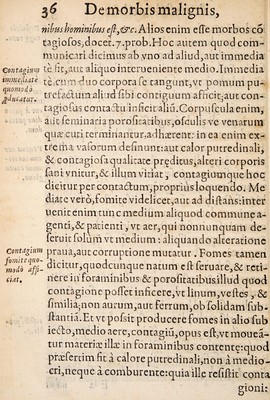 36 De morbis malignis,
nibus hominibus est, &c. Alios enim esse morbos cõ
tagiosos, docet. 7. prob. Hoc autem quod com-
municari dicimus ab vno ad aliud, aut immedia
Contagium
immediate
quomodo
aduratur.
tè fit, aut aliquo interueniente medio. Immedia
tè cum duo corpora se tangunt, vt pomum pu-
trefactum aliud sibi contiguum afficit, aut con-
tagiosus contactu inficit aliũ. Corpuscula enim,
aut seminaria porositatibus, osculis ve venarum
quæ curi terminantur adhærent: in ea enim ex-
trema vasorum desinunt: aut calor putredinali,
& contagiosa qualitate præditus, alteri corporis
sani vnitur, & illum vitiat, contagiumque hoc
dicitur per contactum, proprius loquendo. Me
diate verò, fomite videlicet, aut ad distans: inter
uenit enim tunc medium aliquod commune a-
genti, & patienti, vt aer, qui nonnunquam de-
seruit solùm vt medium: aliquando alteratione
Contagium
fomite quo-
modò affi-
ciat.
praua, aut corruptione mutatur. Fomes tamen
dicitur, quodcunque natum est seruare, & reti-
nere in foraminibus & porositatibus illud quod
contagione posset inficere, vt linum, vestes, &
similia, non aurum, aut ferrum, ob solidam sub-
stantiã. Et vt possit producere fomes in alio sub
iecto, medio aere, contagiũ, opus est, vt mouea-
tur materiæ illæ in foraminibus contentæ: quod
præsertim fit à calore putredinali, non à medio-
cri, neque à comburente: quia ille resistit conta
gioni: